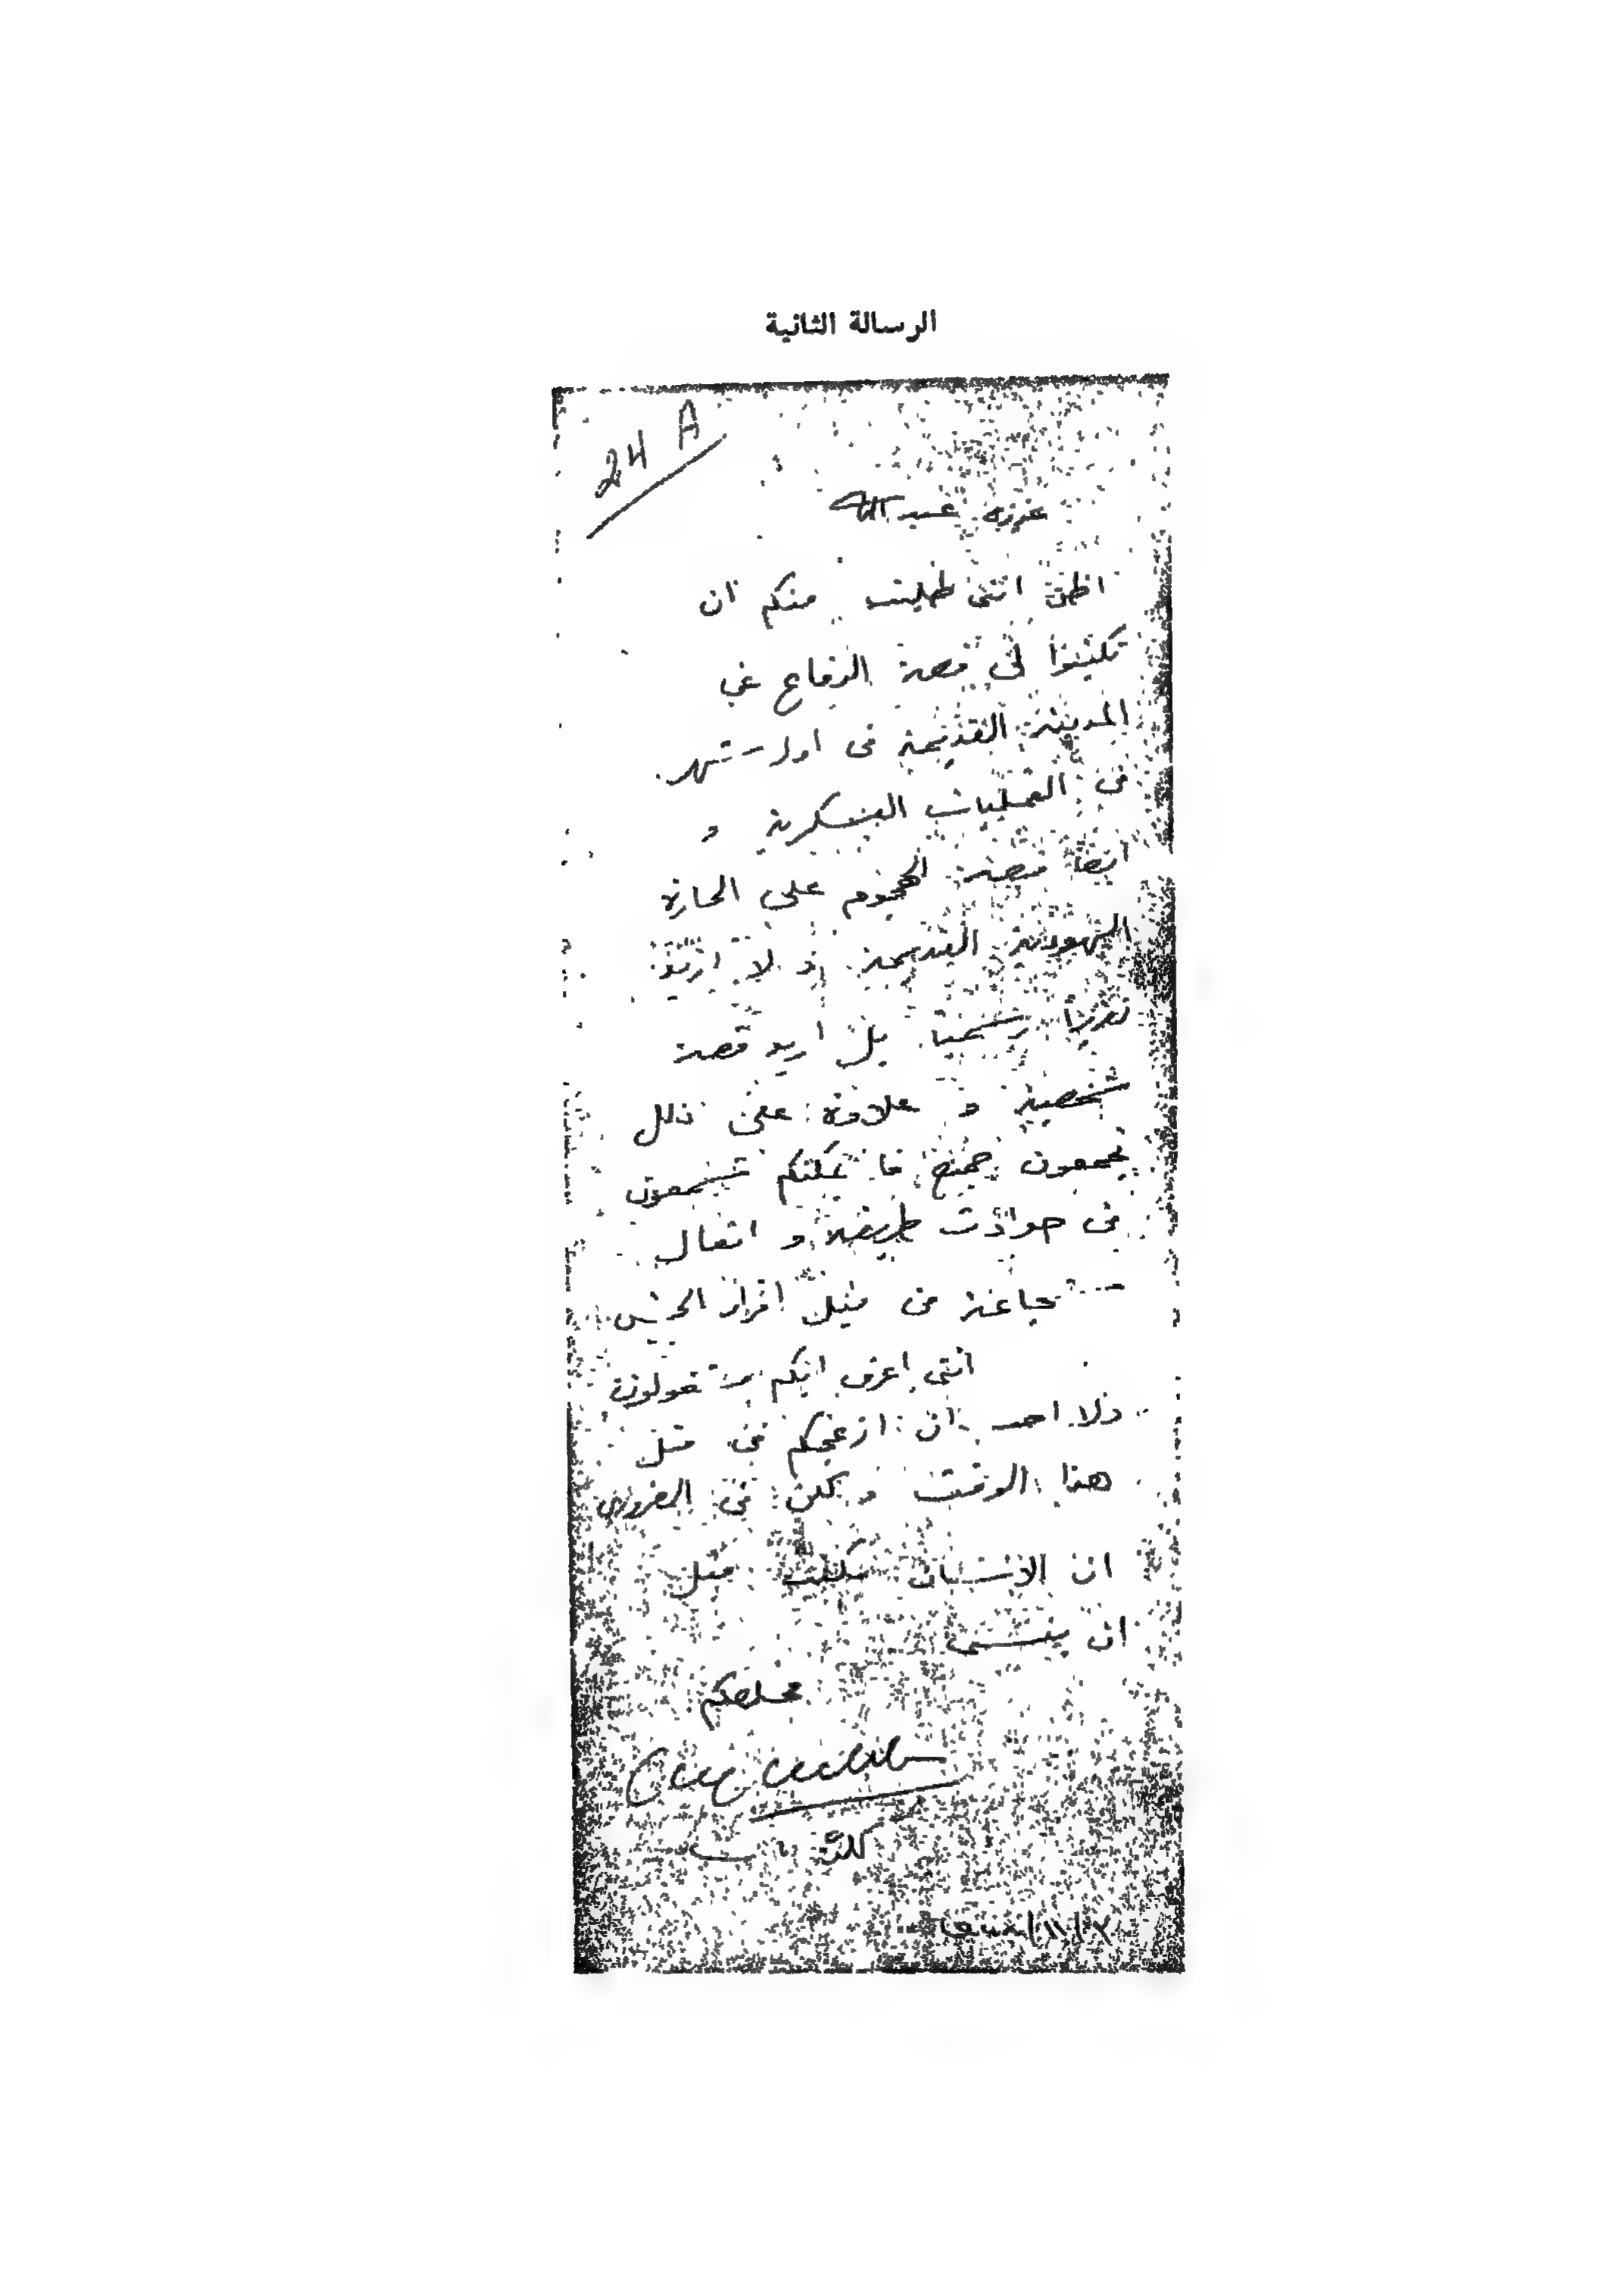 الرسالة الثانية
24 A
عزيزي عبدالله
اظن انني طلبت منكم ان
تكتبوا لي قصة الدفاع عن
المدينة القديمة في اول شهر
في العمليات العسكرية و
ايضا قصة الهجوم على الحارة
اليهودية القديمة و لا اريد
تقريرا رسميا بل اريد قصة
شخصية و علاوة على ذلك
جميع ما يمكنكم
في حوادث طريفة و افعال
شجاعة من قبل افراد الجيش
انني اعرف انكم مشغولون
ولا احب ان ازعجكم في مثل
هذا الوقت و لكن من الضروري
ان الانسان يكتب قبل
ان ينسى
مخلصكم
كلوب